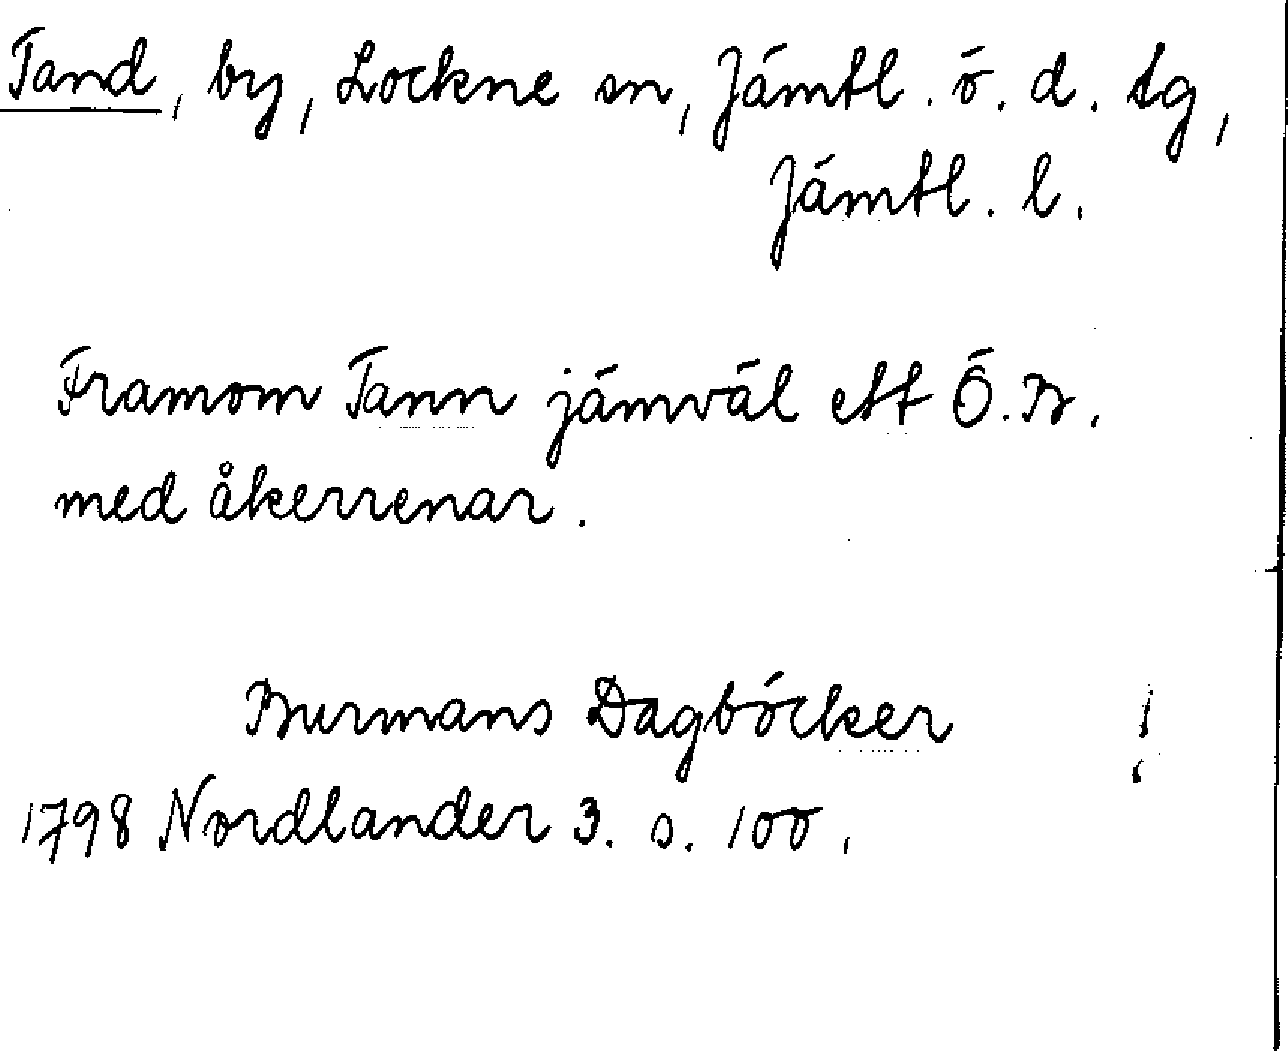 Tand, by, Lockne sn, Jämtl. ö. d. tg,
Jämtl. l.
Framom Tann jämväl ett Ö.B.
med åkerrenar.
Burmans Dagböcker !
1798 Nordlander 3. s. 100.